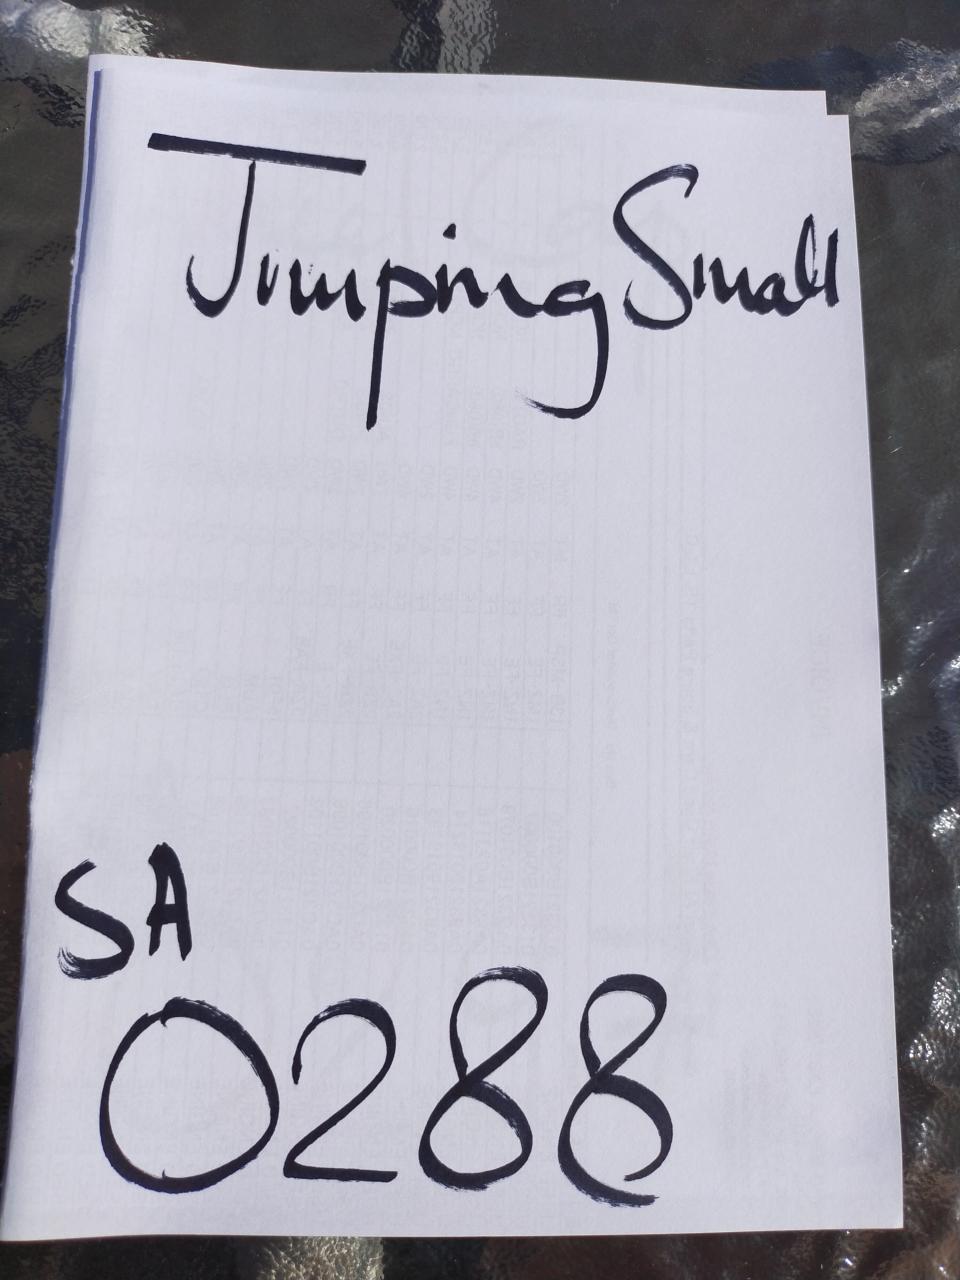 Jumping Small
SA
0288